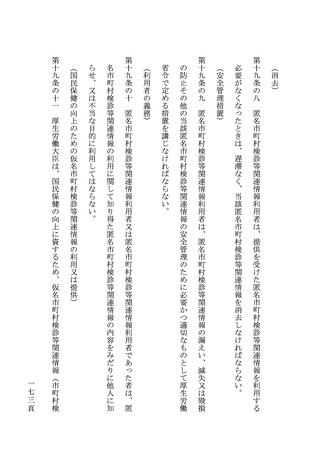 （消去）
第十九条の八　匿名市町村検診等関連情報利用者は、提供を受けた匿名市町村検診等関連情報を利用する
必要がなくなったときは、遅滞なく、当該匿名市町村検診等関連情報を消去しなければならない。
（安全管理措置）
第十九条の九　匿名市町村検診等関連情報利用者は、匿名市町村検診等関連情報の漏えい、滅失又は毀損
の防止その他の当該匿名市町村検診等関連情報の安全管理のために必要かつ適切なものとして厚生労働
省令で定める措置を講じなければならない。
（利用者の義務）
第十九条の十　匿名市町村検診等関連情報利用者又は匿名市町村検診等関連情報利用者であった者は、匿
名市町村検診等関連情報の利用に関して知り得た匿名市町村検診等関連情報の内容をみだりに他人に知
らせ、又は不当な目的に利用してはならない。
（国民保健の向上のための仮名市町村検診等関連情報の利用又は提供）
第十九条の十一　厚生労働大臣は、国民保健の向上に資するため、仮名市町村検診等関連情報（市町村検
一七三頁